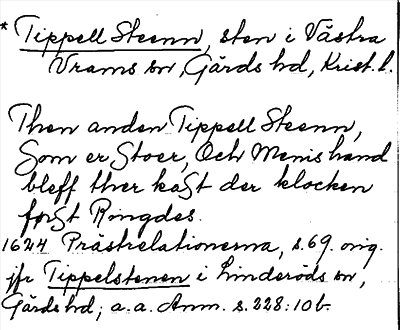 * Tippell Steenn, sten i Västra
Vrams sn, Gärds hd, Krist. l.
Then anden Tippell Steenn,
Som er Stoer, Och Menis hand
bleff ther kaSt der klocken
førSt Ringdes.
1624 Prästrelationerna, s. 69. orig.
jfr Tippelstenen i Linderöds sn,
Gärds hd; a. a. Anm. s. 228: 10 b.